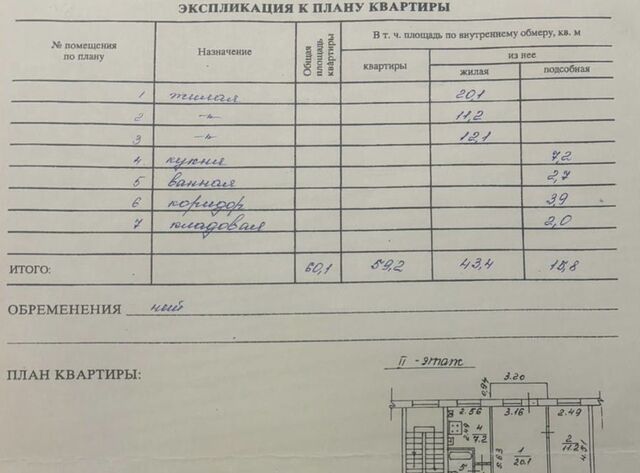 ЭКСПЛИКАЦИЯ К ПЛАНУ КВАРТИРЫ
№ помещения по плану Назначение Общая площадь квартиры В т. ч. площадь по внутреннему обмеру, кв. м
квартиры из нее
жилая подсобная
1 жилая 20,1
2 -"- 11,2
3 -"- 12,1
4 кухня 7,2
5 ванная 2,7
6 коридор 3,9
7 кладовая 2,0
ИТОГО: 60,1 59,2 43,4 15,8
ОБРЕМЕНЕНИЯ
ПЛАН КВАРТИРЫ:
II - этаж
0,94 3.20
2.56 3.16 2.49
2.49 4 7.2 5.63 1 20.1 2 11.2 4.51
5